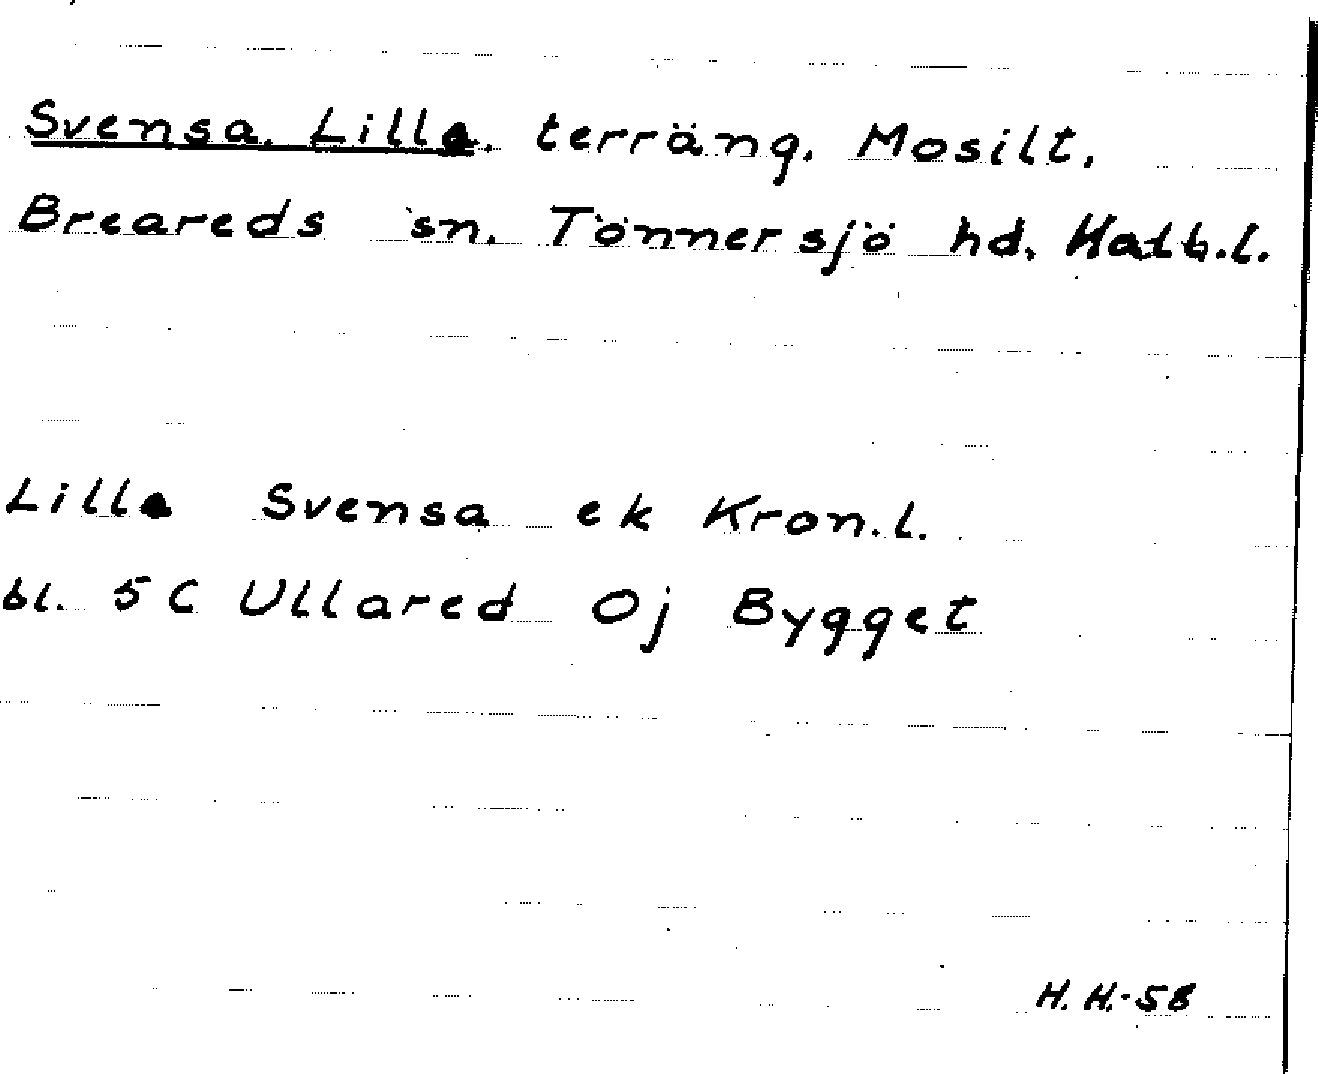 Svensa, Lilla. terräng. Mosilt.
Breareds sn. Tönnersjö hd. Hallb.l.
Lilla Svensa ek Kron.l.
bl. 5C Ullared Oj Bygget
H.H.-58